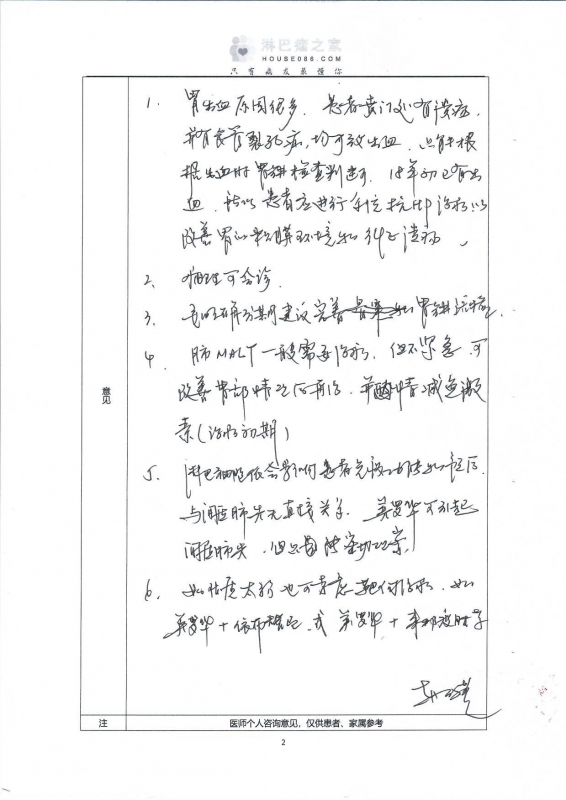 淋巴瘤之家
HOUSE086.COM
只有病友最懂你
意见
1. 胃出血原因很多，患者贲门处有溃疡，
并有食管裂孔疝，均可致出血，只有根
据出血时胃镜检查判断。18年初已有出
血，所以患者应进行 抗HP治疗以
改善胃 黏膜环境和纠正溃疡。
2. 病理可会诊
3. 分期建议完善 胃镜
4. 肺MALT一般需要治疗，但不紧急，可
改善胃部情况后再治，并酌情减免激
素（治疗初期）
5. 淋巴瘤 会影响患者免疫功能
与间质肺炎无直接关系，美罗华可引起
间质肺炎，但只需
6. 如 太弱也可考虑靶向治疗，如
美罗华+依布替尼，或美罗华+来那度胺等
注
医师个人咨询意见，仅供患者、家属参考
2